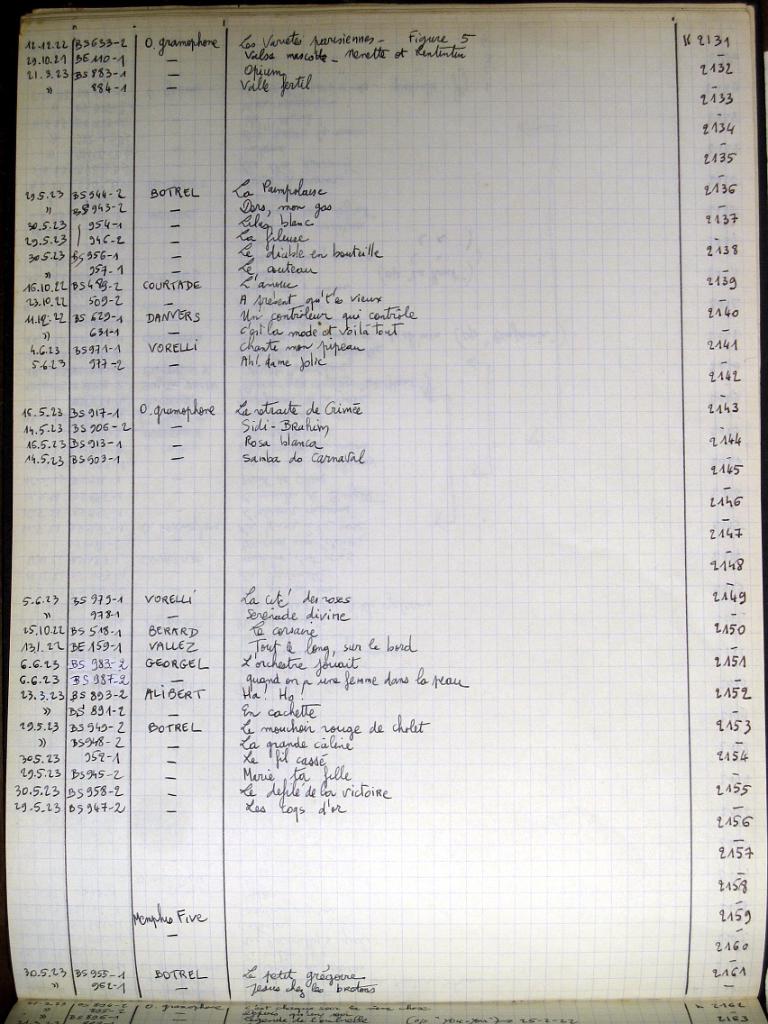 12.12.22 BS 633-2 O. gramophone Les Varietés parisiennes - Figure 5 K 2131
29.10.21 BE 110-1 — Valse mascotte - Nenette et Rintintin —
21.3.23 BS 883-1 — Opium 2132
" 884-1 — Valle fertil —
2133
—
2134
—
2135
—
29.5.23 BS 944-2 BOTREL La Paimpolaise 2136
" BS 943-2 — Dors, mon gas —
30.5.23 954-1 — Lilas blanc 2137
29.5.23 946-2 — La fileuse —
30.5.23 BS 956-1 — Le diable en bouteille 2138
" 957-1 — Le couteau —
16.10.22 BS 489-2 COURTADE L'amour 2139
23.10.22 509-2 — A présent qu't'es vieux —
11.12.22 BS 629-1 DANVERS Un contrôleur qui contrôle 2140
" 631-1 — C'est la mode et voilà tout —
4.6.23 BS 971-1 VORELLI chante mon pipeau 2141
5.6.23 977-2 — Ah! dame jolie —
2142
—
16.5.23 BS 917-1 O. gramophone La retraite de Crimée 2143
14.5.23 BS 906-2 — Sidi-Brahim —
16.5.23 BS 913-1 — Rosa blanca 2144
14.5.23 BS 903-1 — Samba do Carnaval —
2145
—
2146
—
2147
—
2148
—
5.6.23 BS 979-1 VORELLI La cité des roses 2149
" 978-1 — Serenade divine —
25.10.22 BS 518-1 BERARD Le corsaire 2150
13.1.22 BE 159-1 VALLEZ Tout le long, sur le bord —
6.6.23 BS 983-2 GEORGEL L'orchestre jouait 2151
6.6.23 BS 987-2 — quand on a une femme dans la peau —
23.3.23 BS 893-2 ALIBERT Ha! Ha! 2152
" BS 891-2 — En cachette —
29.5.23 BS 949-2 BOTREL Le mouchoir rouge de cholet 2153
" BS 948-2 — La grande câline —
30.5.23 952-1 — Le fil cassé 2154
29.5.23 BS 945-2 — Marie ta fille —
30.5.23 BS 958-2 — Le defilé de la victoire 2155
29.5.23 BS 947-2 — Les coqs d'or —
2156
—
2157
—
2158
—
Memphis Five 2159
— —
2160
—
30.5.23 BS 955-1 BOTREL Le petit grégoire 2161
" 962-1 — Jesus chez les bretons —
O. gramophone 2162
2163